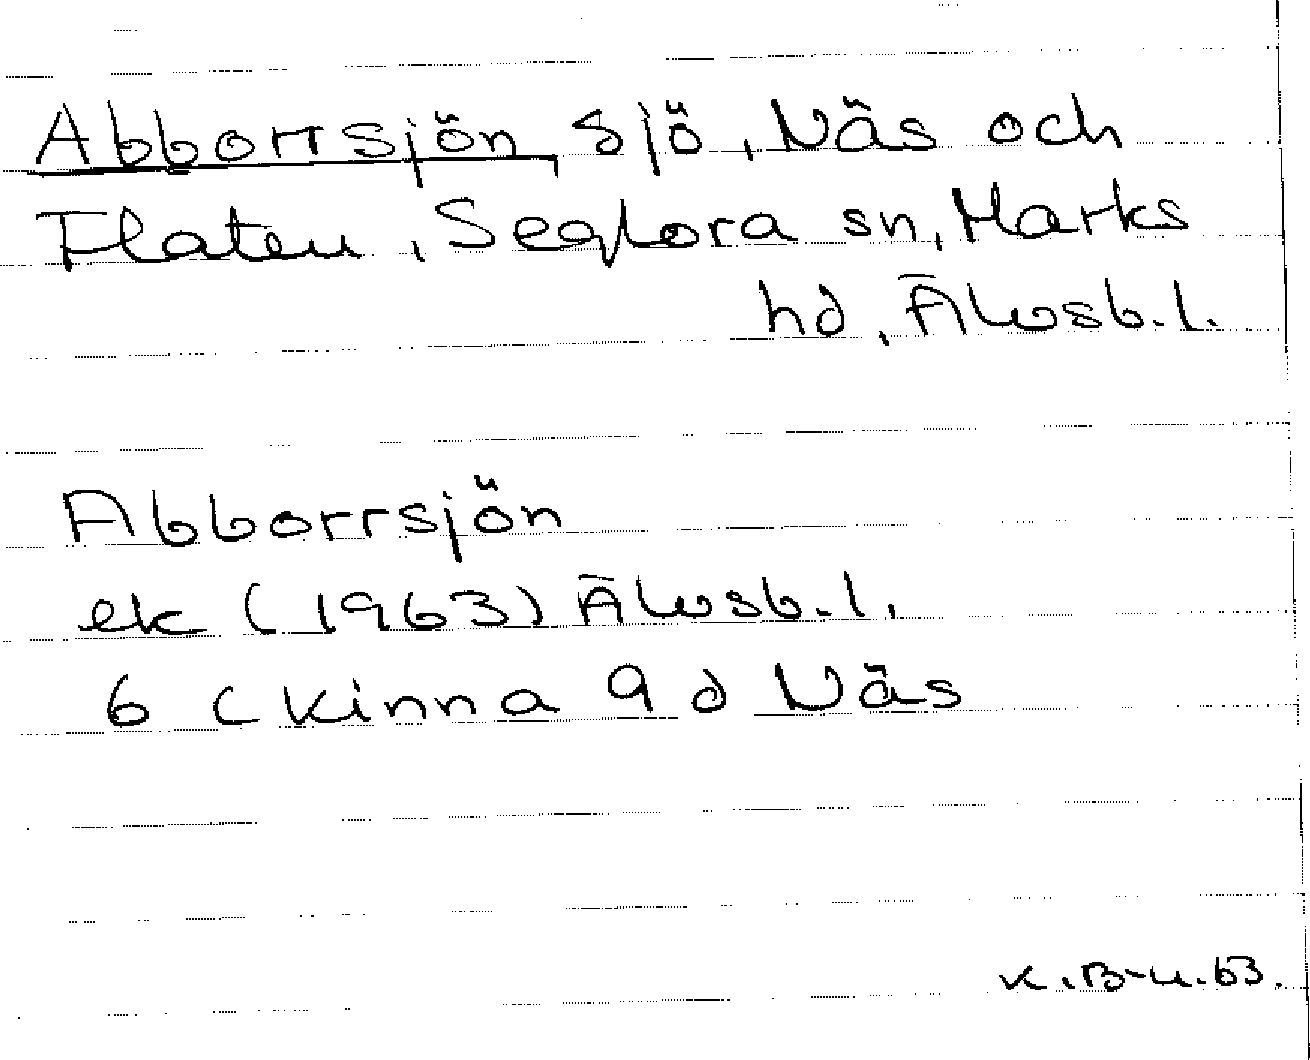 Abborrsjön, sjö, Näs och
Flaten, Seglora sn, Marks
hd, Älvsb.l.
Abborrsjön
ek (1963) Älvsb.l.
6 C Kinna 9 d Näs
K.B-u.63.